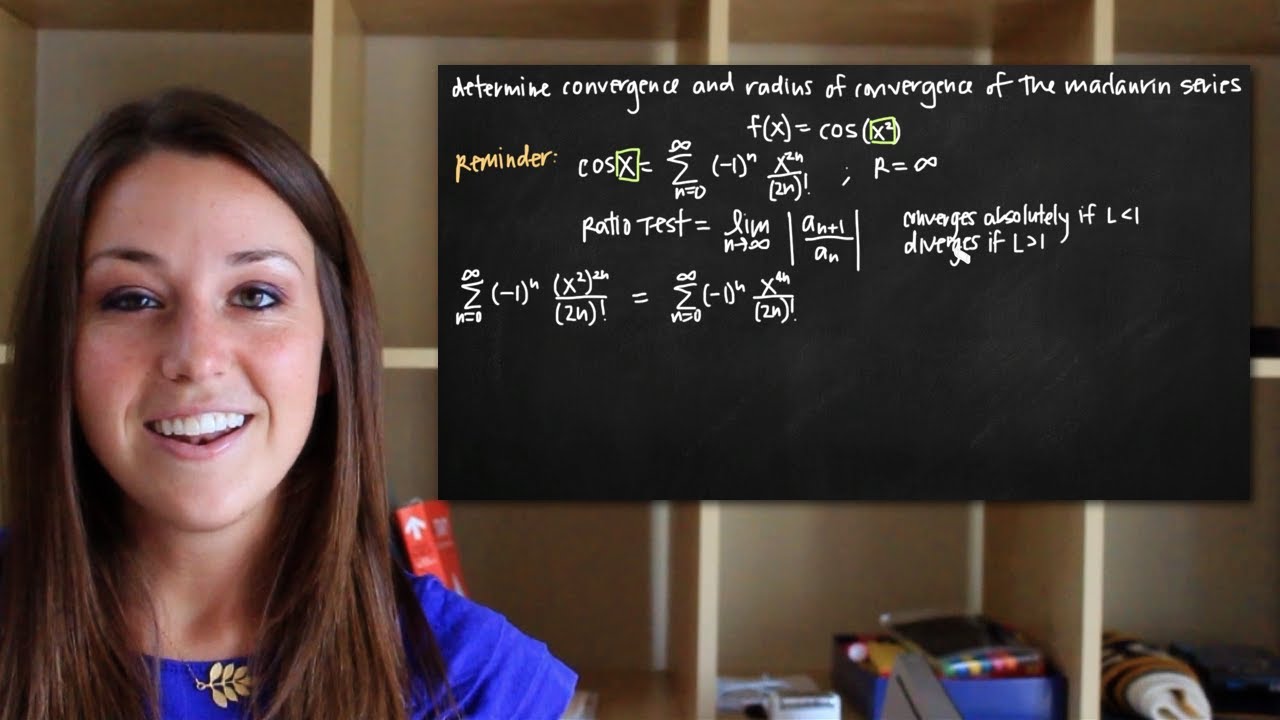 determine convergence and radius of convergence of the maclaurin series
f(x) = cos(x²)
Reminder: cos x = ∑_{n=0}^{∞} (-1)ⁿ x²ⁿ/(2n)! ; R = ∞
Ratio Test = lim_{n→∞} |a_{n+1}/a_n| converges absolutely if L<1
diverges if L>1
∑_{n=0}^{∞} (-1)ⁿ (x²)²ⁿ/(2n)! = ∑_{n=0}^{∞} (-1)ⁿ x⁴ⁿ/(2n)!